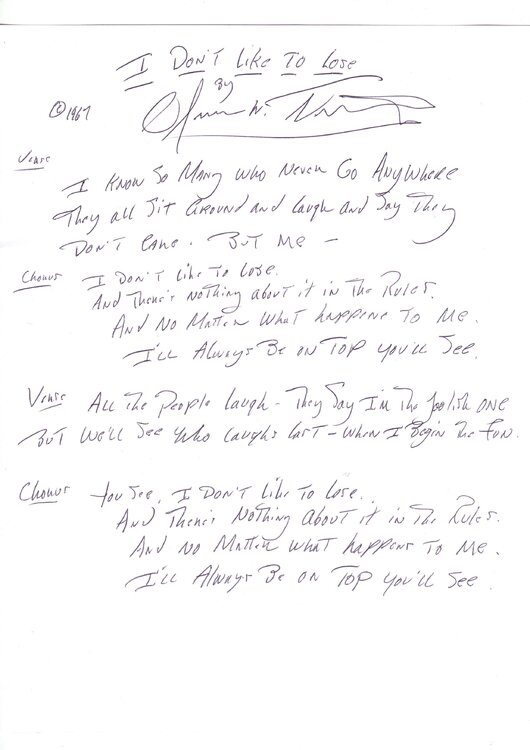 I Don't Like To Lose
By
©1967
Verse
I Know So Many who Never Go Anywhere
They all Sit Around and laugh and Say They
Don't Care. But Me —
Chorus
I Don't Like To Lose.
And There's nothing about it in The Rules.
And No Matter what happens To Me.
I'll Always Be on Top you'll See.
Verse All The People laugh - They Say I'm The foolish one
But We'll See who laughs last - when I Begin The Fun.
Chorus You See, I Don't Like To Lose.
And There's Nothing About it in The Rules.
And No Matter what happens To Me.
I'll Always Be on Top you'll See.